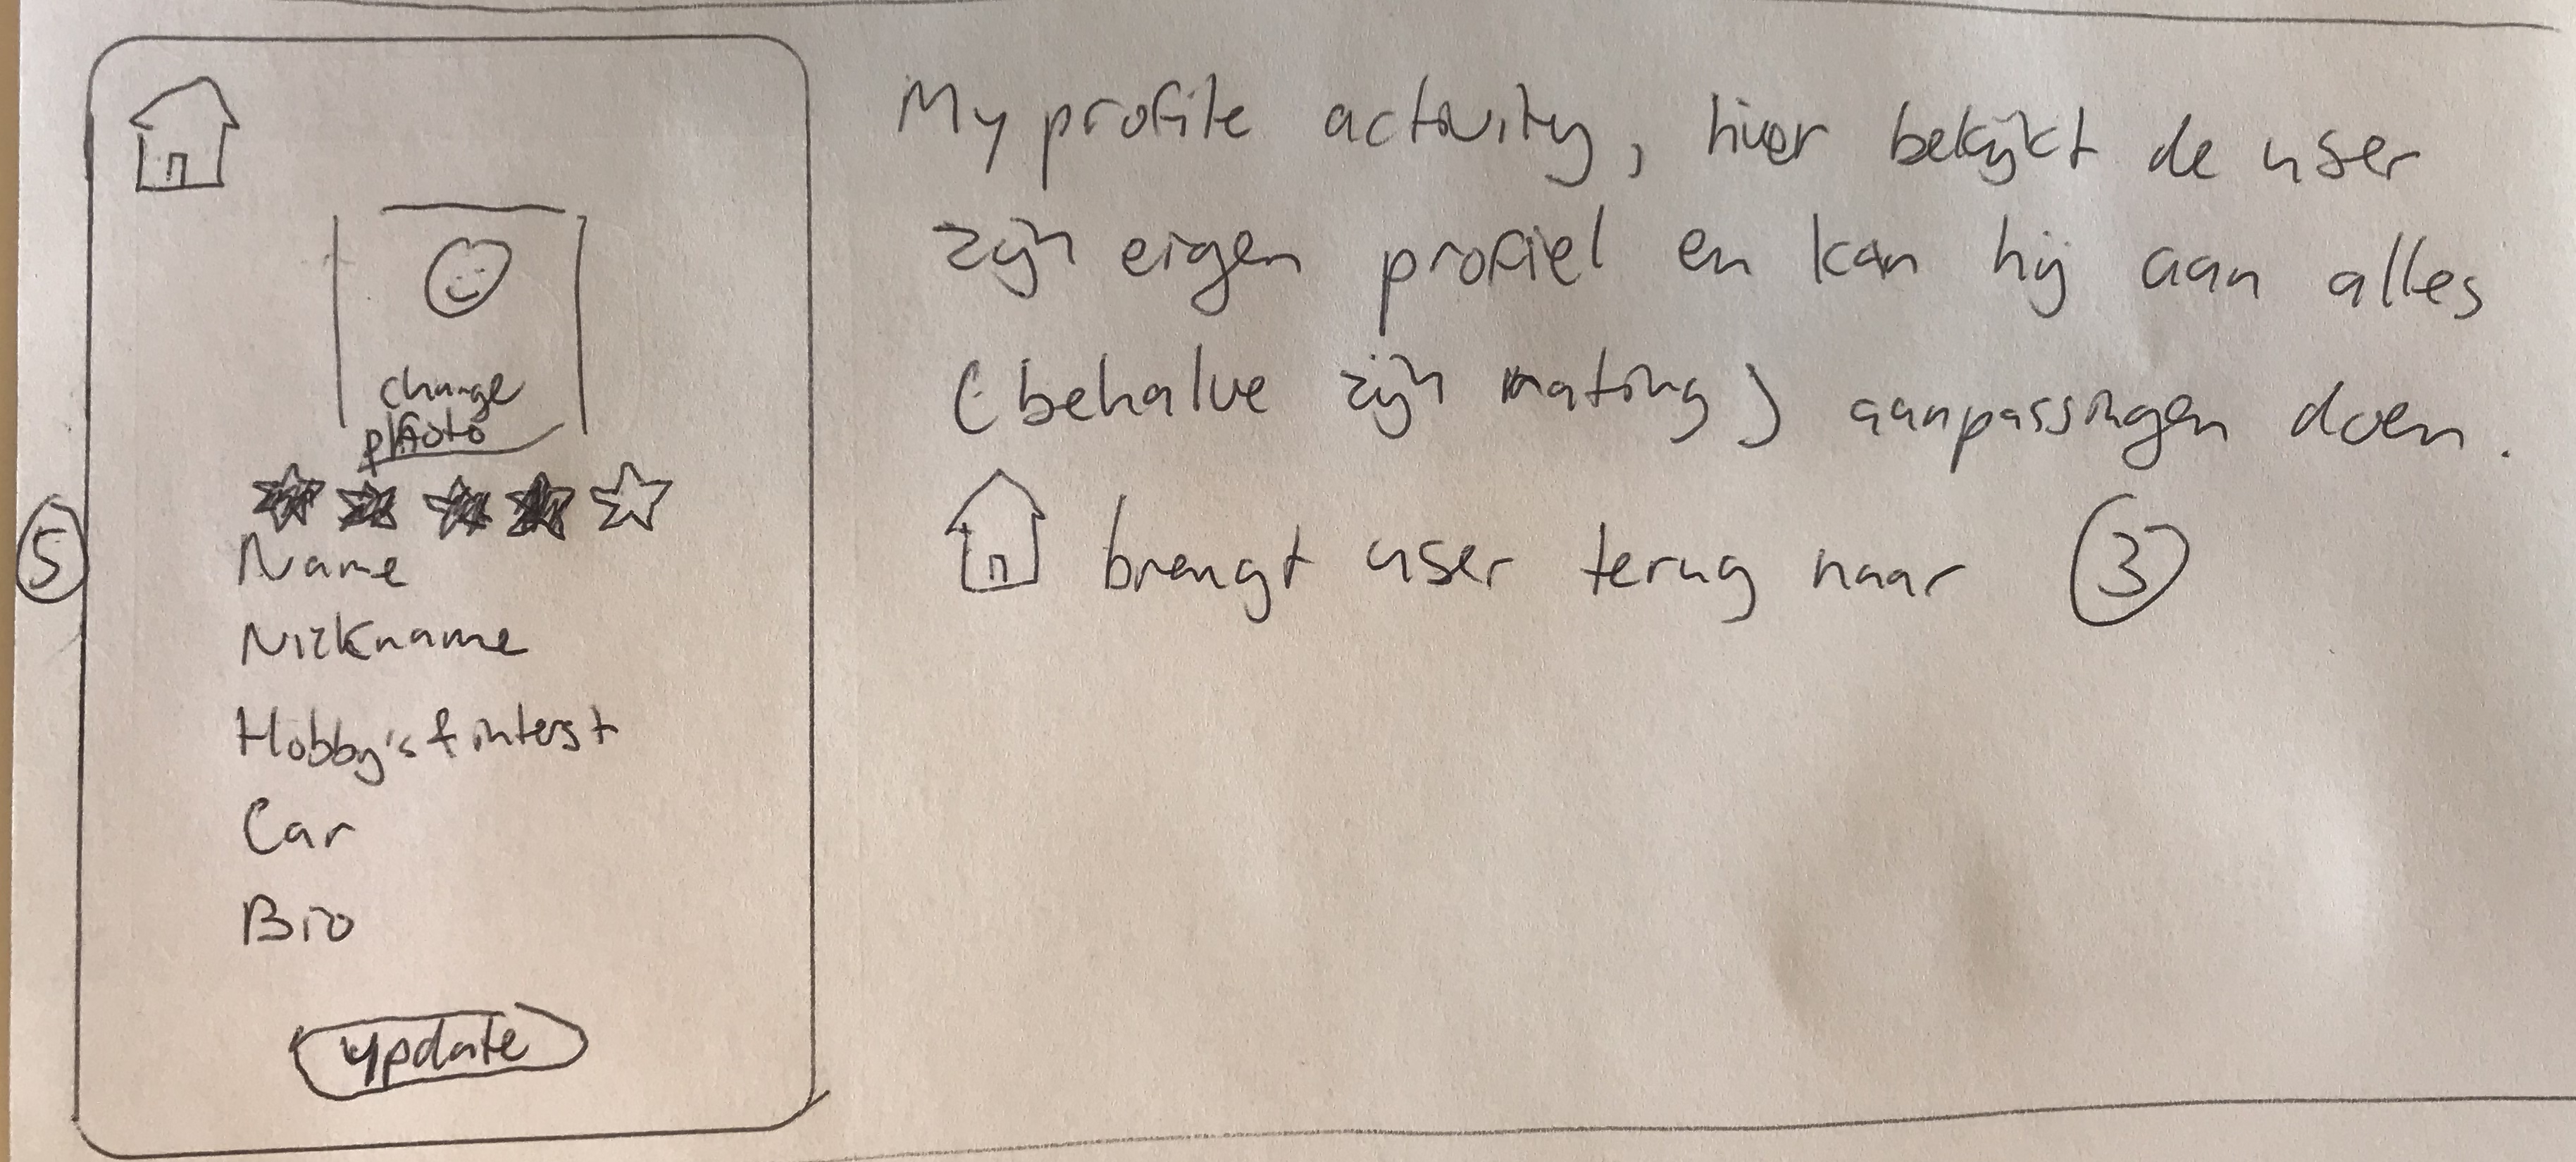 change
photo
5
Name
Nickname
Hobby's & interst
Car
Bio
update
My profile activity, hier bekijkt de user
zijn eigen profiel en kan hij aan alles
(behalve zijn rating) aanpassingen doen.
brengt user terug naar 3